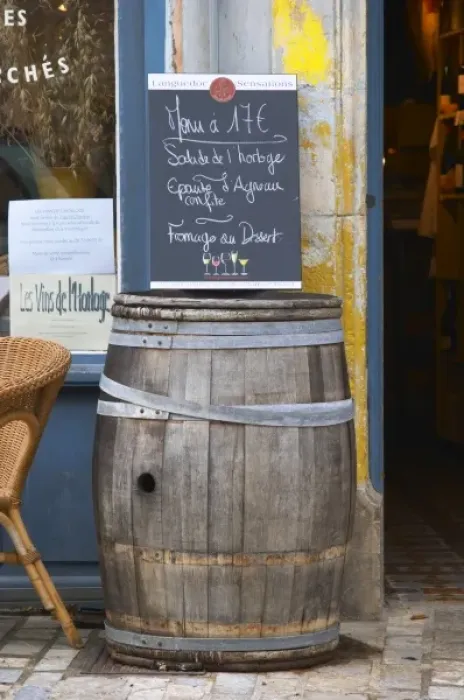 ES
CHÉS
Languedoc Sensations
Menu à 17€
Salade de l'horloge
Epaule d'Agneau
confite
Fromage ou Dessert
Les Vins de l'Horloge